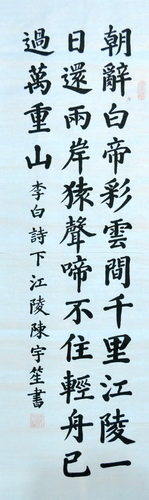 朝辭白帝彩雲間千里江陵一
日還兩岸猿聲啼不住輕舟已
過萬重山
李白詩下江陵陳宇笙書